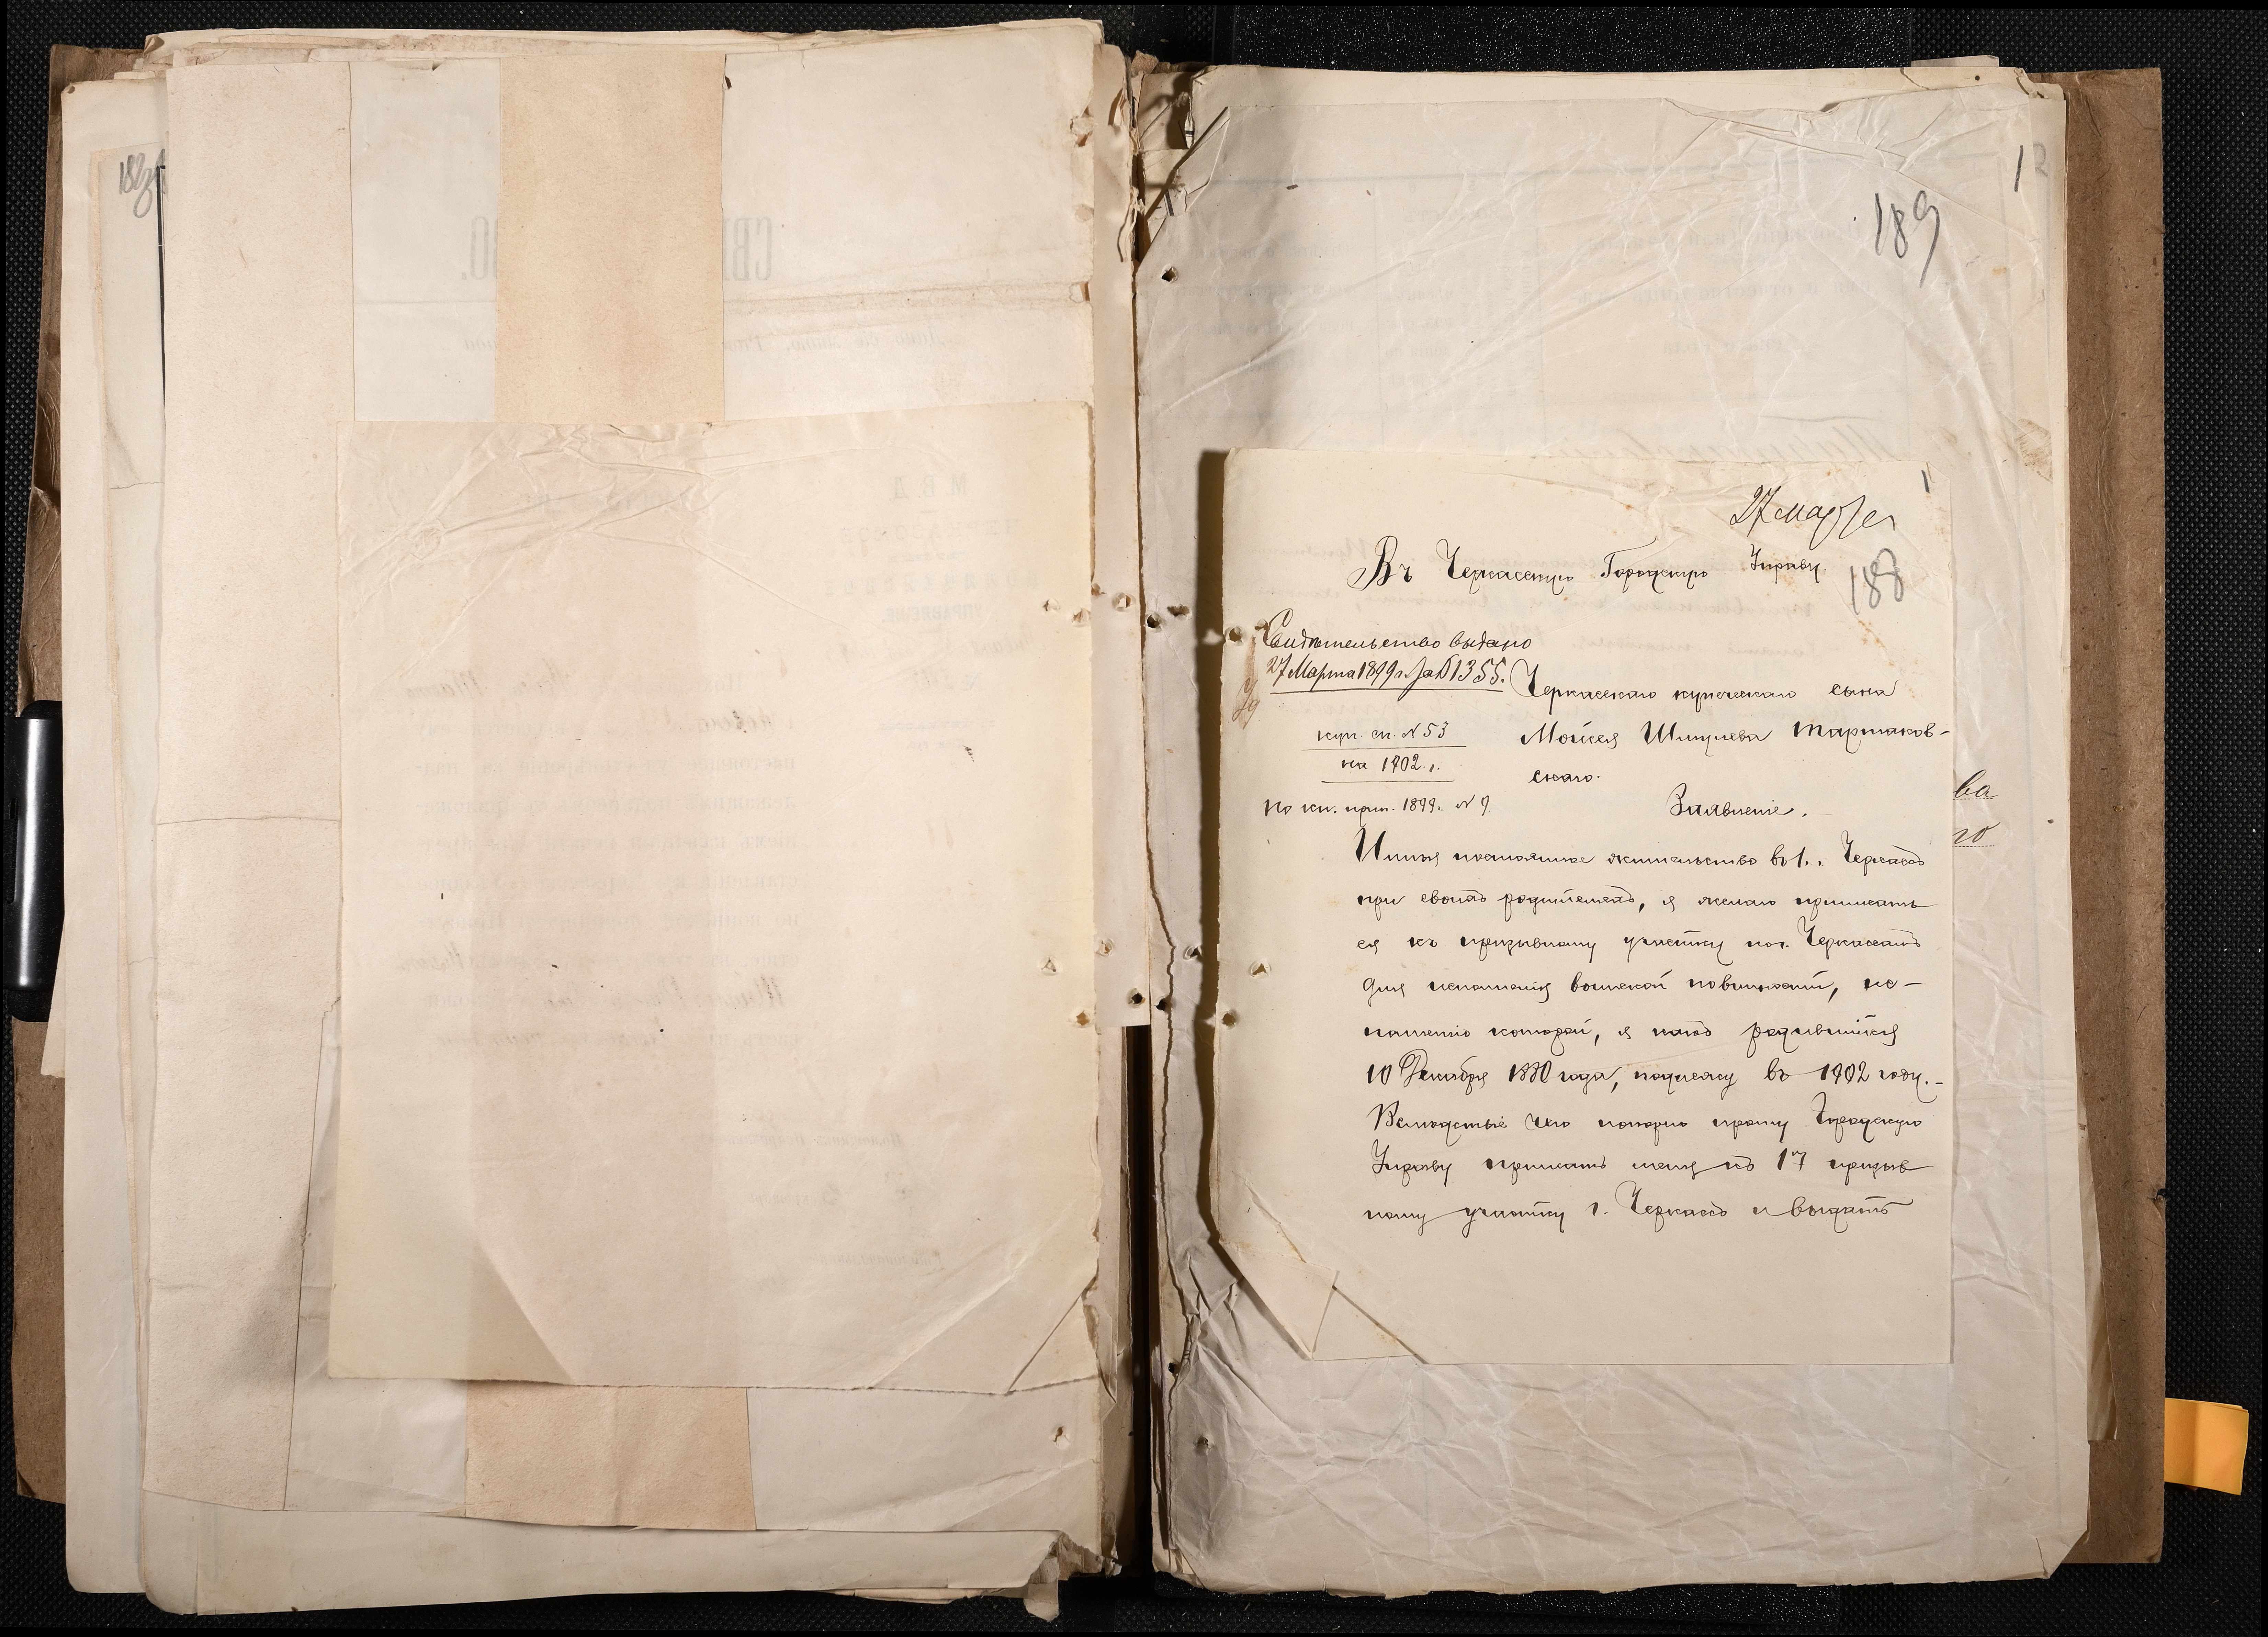 189
27 марта
Въ Черкасскую Городскую Управу.
188
Свидѣтельство выдано
27 Марта 1899 г. за № 1355.
Черкасскаго купеческаго сына
куп. сп. № 53
на 1902 г.
Мойсея Шмулева Таршаков-
скаго.
по кн. прип. 1899 г. № 9.
Заявленіе.
Имѣя постоянное жительство въ г. Черкассѣ
при своихъ родителяхъ, я желаю приписать
ся къ призывному участку по г. Черкассамъ
для исполненія воинской повинности, ис-
полненію которой, я какъ родившійся
10 Декабря 1880 года, подлежу въ 1902 году.-
Вслѣдствіе чего покорно прошу Городскую
Управу приписать меня къ 1му призыв
ному участку г. Черкассъ и выдать
ва
го